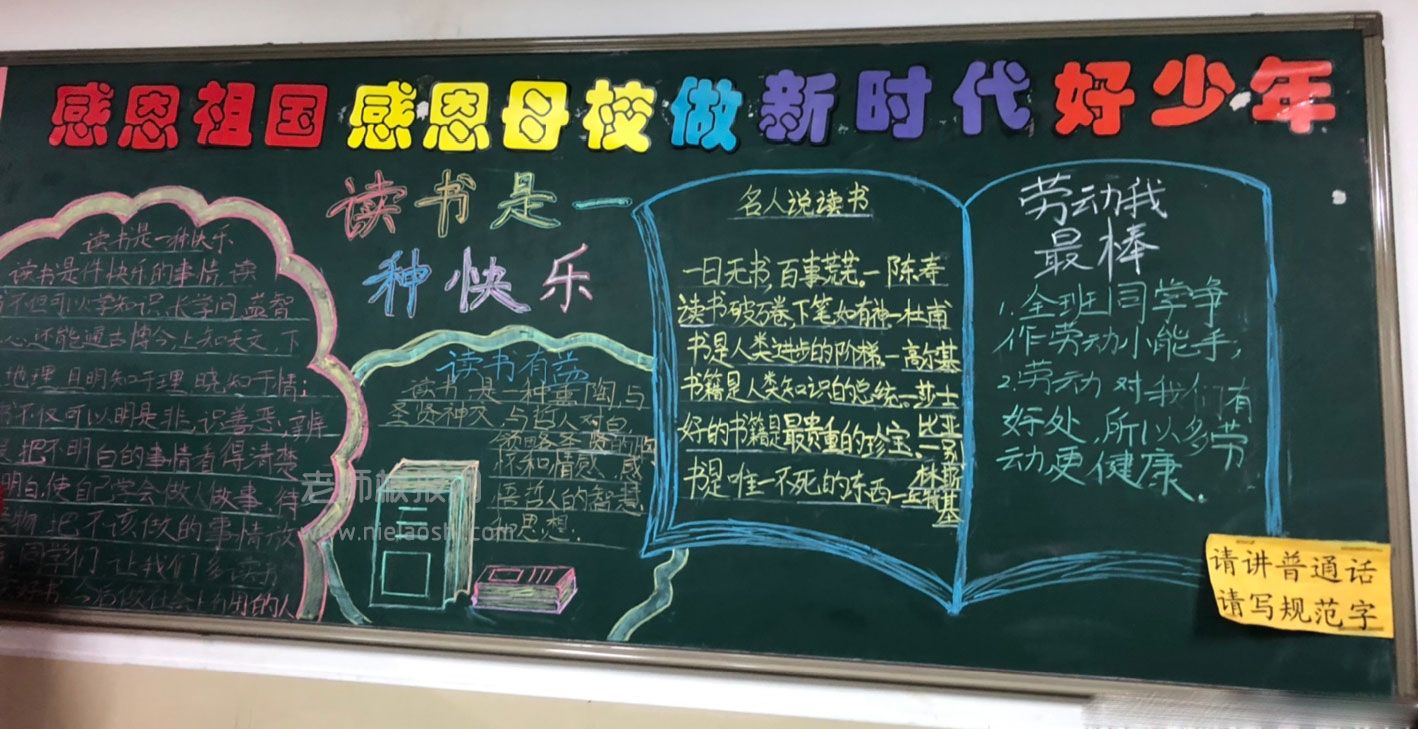 感恩祖国感恩母校做新时代好少年
读书是一种快乐
读书是件快乐的事情,读
不但可以学知识,长学问,益智
心,还能通古博今,上知天文,下
地理,且明知千理,晓如千情;
不仅可以明是非,识善恶,辨
把不明白的事情看得清楚
明白,使自己学会做人做事,待
物,把不该做的事情放
同学们,让我们多读书
好书,今后做社会上有用的人
读书是一
种快乐
读书有益
读书,是一种熏陶,与
圣贤神交,与哲人对白,
领略圣贤的
怀和情愫,感
悟哲人的智慧
和思想;
名人说读书
一日无书,百事荒芜。一陈寿
读书破万卷,下笔如有神一杜甫
书是人类进步的阶梯一高尔基
书籍是人类知识的总统。一莎士比亚
好的书籍是最贵重的珍宝。一
书是唯一不死的东西一丘特
林斯基
劳动我
最棒
1.全班同学争
作劳动小能手;
2.劳动对我们有
好处,所以多劳
动更健康.
请讲普通话
请写规范字
老师板报网
www.nielaoshi.com